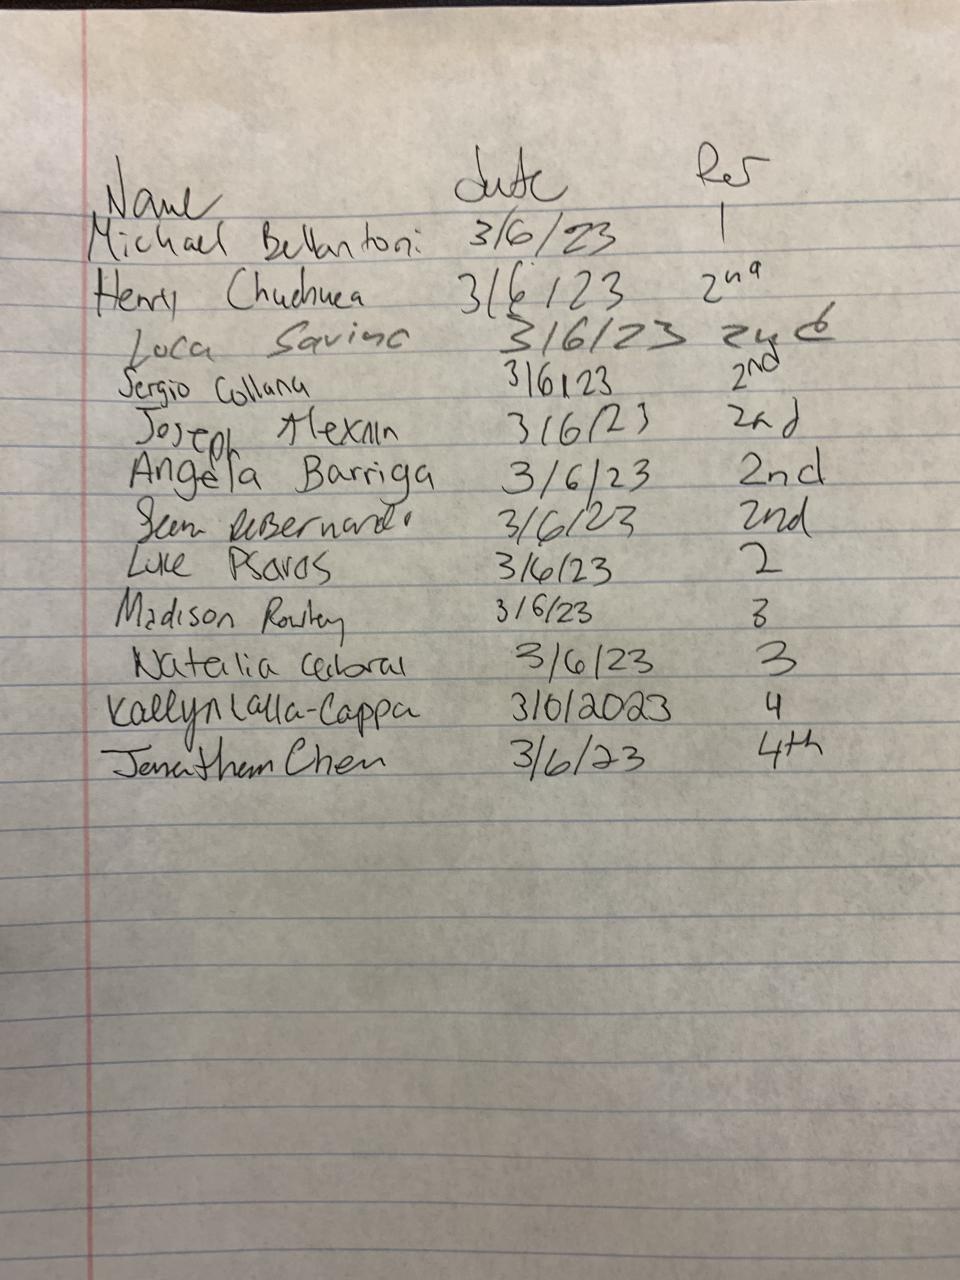 Name date Per
Michael Bellantoni 3/6/23 1
Henry Chuchuca 3/6/23 2nd
Luca Savino 3/6/23 2nd
Sergio Collana 3/6/23 2nd
Joseph 3/6/23 2nd
Angela Barriga 3/6/23 2nd
Sean DeBernardo 3/6/23 2nd
Luke Psaros 3/6/23 2
Madison Rowley 3/6/23 3
Natalia 3/6/23 3
Kaelyn Lalla-Cappa 3/6/2023 4
Jonathan Chen 3/6/23 4th